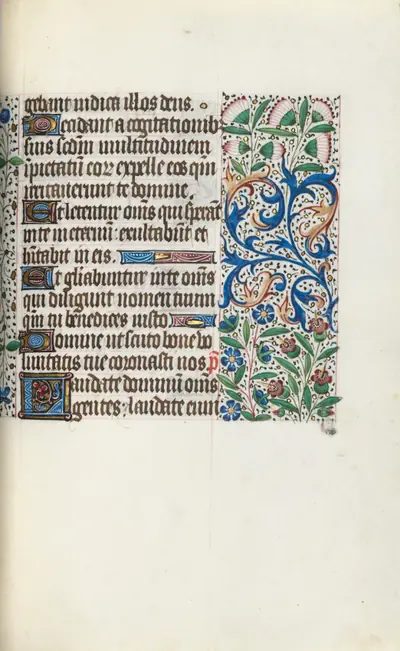 gebant iudica illos deus.
Decidant a cogitationib⁹
suis scdm multitudinem
ipietatū eoꝝ expelle eos qm̄
irritauerunt te domine.
Et letentur om̄s qui sperāt
in te in eternū: exultabūt et
hītabit in eis.
Et gl̄iabuntur in te om̄s
qui diligunt nomen tuum
qm̄ tu benedices iusto
Domine ut scuto bone uo
luntatis tue coronasti nos. p̄s
Laudate dominū om̄s
gentes: laudate eum